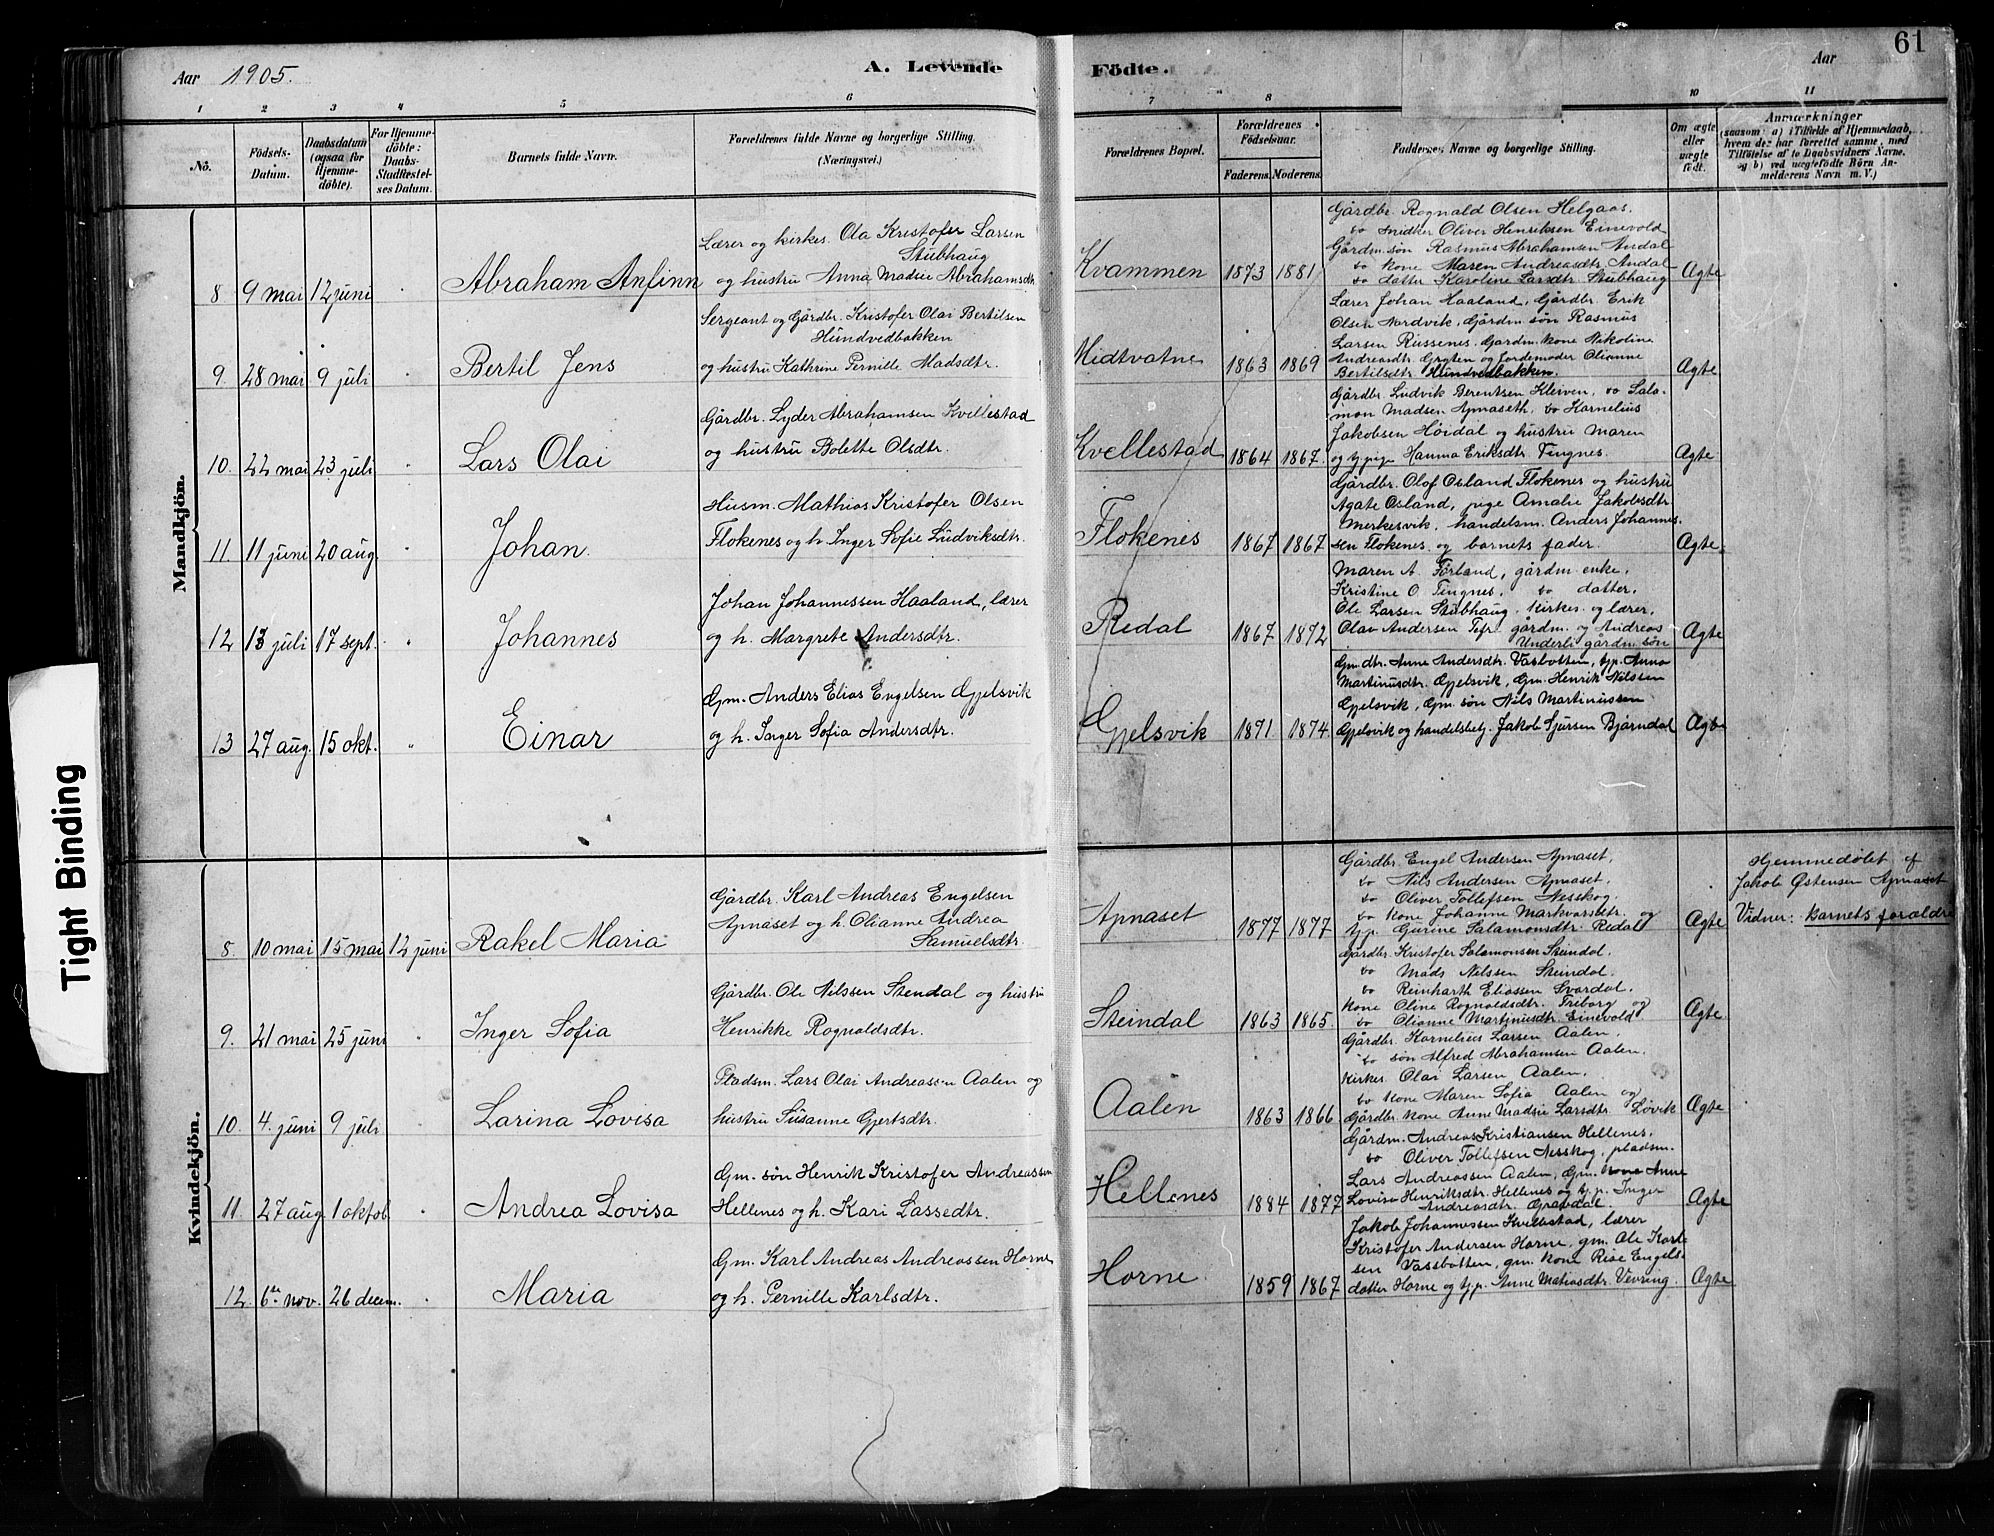 61
Aar 1905.
A. Levende
Födte.
Aar
1 2 3 4 5 6 7 8 10 11
No.
Födsels-
Datum.
Daabsdatum
(ogsaa for
Hjemme-
döbte).
For Hjemme-
döbte:
Daabs-
Stadfestel-
ses Datum.
Barnets fulde Navn.
Forældrenes fulde Navne og borgerlige Stilling.
(Næringsvei.)
Forældrenes Bopæl.
Forældrenes
Födselsaar.
Faderens. Moderens.
Faddernes Navne og borgerlige Stilling.
Om ægte
eller
uægte
født.
Anmærkninger
(saasom: a) i Tilfælde af Hjemmedaab,
hvem der har forrettet samme, med
Tilföielse af to Daabsvidners Navne.
og b) ved uægtefødte Börn An-
melderens Navn m. V.)
Mandkjön.
8 9 mai 12 juni
Abraham Anfinn
Lærer og kirkes. Ola Kristofer Larsen
Stubhaug
og hustru Anna Madsie Abrahamsdtr
Kvammen
1873 1881
Gårdbr. Rognald Olsen Helgaas.
do smidker Oliver Henriksen Einevold
Gårdm. søn Rasmus Abrahamsen Andal
do kone Maren Andreasdtr. Andal
do datter Karoline Larsdtr. Stubhaug
Agte
9. 28 mai 9 juli "
Bertil Jens
Sergeant og Gårdbr. Kristofer Olai Bertilsen
Hundvedbakken
og hustru Kathrine Pernille Madsdtr.
Midtvatne
1863 1869
Lærer Johan Haaland, Gårdbr. Erik
Olsen Nordvik, Gårdm. søn Rasmus
Larsen Russenes. Gårdm. kone Nikoline
Andreasdtr. Gryten og Jordemoder Olianne
Bertilsdtr. Hundvedbakken.
Agte
10. 22 mai 23 juli "
Lars Olai
Gårdbr. Lyder Abrahamsen Kvellestad
og hustru Bolette Olsdtr.
Kvellestad
1864 1867.
Gårdbr. Ludvik Berentsen Kleiven, do Sala-
mon Madsen Apnaseth, do Kornelius
Jakobsen Høidal og hustru Maren
og t.pige Hanna Eriksdtr. Tingnes.
Agte
11. 11 juni 20 aug. "
Johan.
Husm. Mathias Kristofer Olsen
Flokenes og h. Inger Sofie Ludviksdtr.
Flokenes
1867 1867
Gårdbr. Olof Osland Flokenes og hustru
Agate Osland, pige Amalie Jakobsdtr
Merkesvik, handelsm. Anders Johannes-
sen Flokenes og barnets fader.
Agte.
12 13 juli 17 sept. "
Johannes
Johan Johannessen Haaland, lærer
og h. Margrete Andersdtr.
Redal
1867 1872
Maren A. Førland, gårdm. enke,
Kristine O. Tingnes, do datter,
Ole Larsen Stubhaug, kirkes. og lærer,
Olai Andersen Tefr. gårdm. og Andreas
Underli gårdm. søn
Agte
13 27 aug. 15 okt. "
Einar
Gm. Anders Elias Engelsen Gjelsvik
og h. Inger Sofia Andersdtr.
Gjelsvik
1871 1874.
Gm. dtr. Anne Andersdtr. Vasbotten, t.p. Anna
Martinusdtr. Gjelsvik, Gm. Henrik Nilssen
Gjelsvik, Gm. søn Nils Martinussen
Gjelsvik og handelsbetj. Jakob Sjursen Bjørndal
Agte
Kvindekjön.
8. 10 mai 15 mai 12 juni
Rakel Maria
Gårdbr. Karl Andreas Engelsen
Apnaset og h. Olianne Andrea
Samuelsdtr.
Apnaset
1877 1877
Gårdbr. Engel Andersen Apnaset,
do Nils Andersen Apnaset.
do Oliver Tollefsen Nesskog.
do kone Johanne Markvarsdtr. og
t.p. Gurine Salamonsdtr. Redal
Agte
Hjemmedøbt af
Jakob Østensen Apnaset
Vidner: Barnets forældre
9. 21 mai 25 juni "
Inger Sofia
Gårdbr. Ole Nilssen Stendal og hustru
Henrikke Rognaldsdtr.
Steindal
1863 1865.
Gårdbr. Kristofer Salamonsen Steindal.
do Mads Nilssen Steindal.
do Reinharth Eliassen Svardal.
kone Oline Rognaldsdtr. Friborg og
do Olianne Martinusdtr. Einevold.
Agte
10. 4. juni 9 juli "
Larina Lovisa
Pladsm. Lars Olai Andreassen Aalen og
hustru Susanne Gjertsdtr.
Aalen
1863 1866
Gårdbr. Kornelius Larsen Aalen.
do søn Alfred Abrahamsen Aalen.
kirkes. Olai Larsen Aalen.
do kone Maren Sofia Aalen og
Gårdbr. kone Anne Madsie Larsdtr. Løvik
Agte
11. 27 aug. 1 oktob. "
Andrea Lovisa
Gm. søn Henrik Kristofer Andreassen
Hellenes og h. Kari Lassedtr.
Hellenes
1884 1877
Gårdm. Andreas Kristiansen Hellenes.
do Oliver Tollefsen Nesskog, pladsm.
Lars Andreassen Aalen, Gm. kone Anne
Lovisa Henriksdtr. Hellenes og t.p. Inger
Andreasdtr. Gravdal.
Agte
12. 6te nov. 26 decem. "
Maria
Gm. Karl Andreas Andreassen Horne
og h. Pernille Karlsdtr.
Horne
1859 1867
Jakob Johannessen Kvellestad, lærer
Kristofer Andersen Horne, gm. Ole Karl-
sen Vassbotten, gm. kone Rise Engels-
datter Horne og t.p. Anne Matiasdtr. Vevring.
Agte
Tight Binding